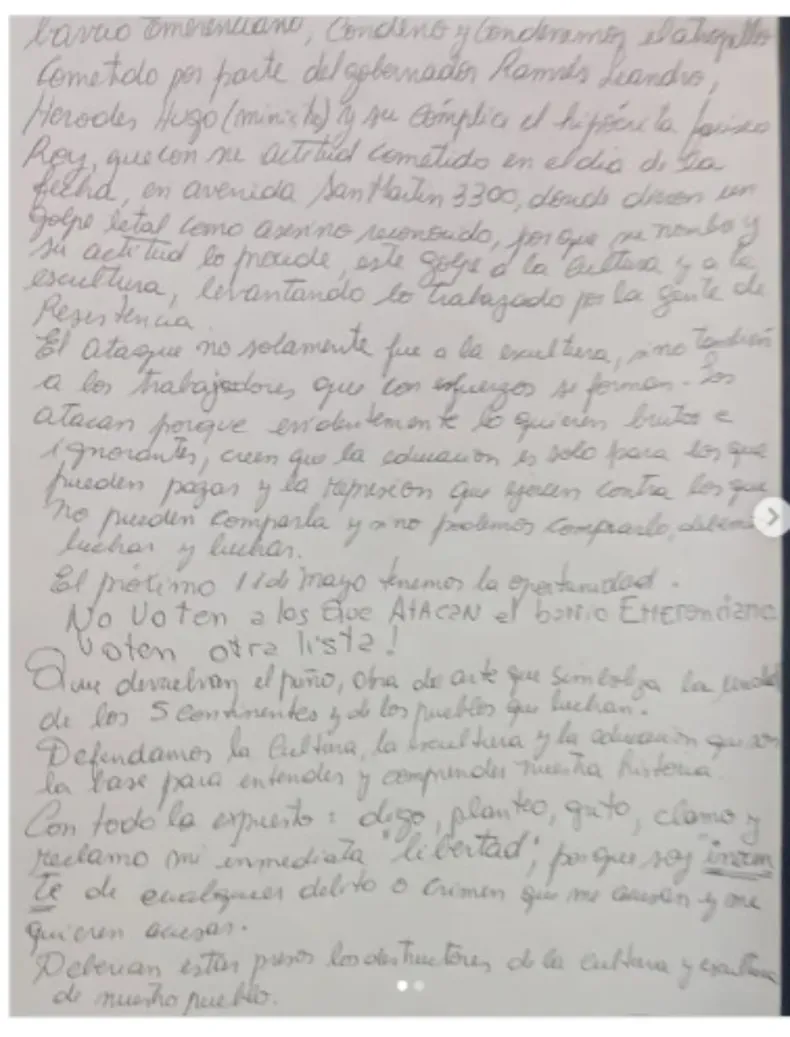 barrio Emerenciano, Condeno y Condenamos el atropello
Cometido por parte del gobernador Ramsés Leandro,
Herodes Hugo (ministro) y su cómplice el hipócrita fariseo
Roy, que con su actitud cometido en el dia de la
fecha, en avenida San Martin 3300, donde dieron un
golpe letal como asesino reconocido, porque su nombre y
su actitud lo precede, este golpe a la Cultura y a la
escultura, levantando lo trabagado por la gente de
Resistencia
El ataque no solamente fue a la escultura, sino también
a los trabajadores que con esfuerzos se forman. Los
atacan porque evidentemente lo quieren brutos e
ignorantes, creen que la educacion es solo para los que
pueden pagar y la represion que ejercen contra los que
no pueden comprarla y si no podemos comprarlo, debemos
luchar y luchar.
El próximo 11 de mayo tenemos la oportunidad.
No Voten a los que AtAcan el barrio Emerenciano
Voten otra lista!
Que devuelvan el puño, obra de arte que simboliza la unidad
de los 5 continentes y de los pueblos que luchan.
Defendamos la Cultura, la escultura y la educacion que son
la base para entender y comprender nuestra historia.
Con todo lo expuesto: digo, planteo, grito, clamo y
reclamo mi inmediata "libertad", porque soy inocen
te de cualquier delito o crimen que me acusan y me
quieren acusar.
Deberian estar presos los destructores de la cultura y escultura
de nuestro pueblo.